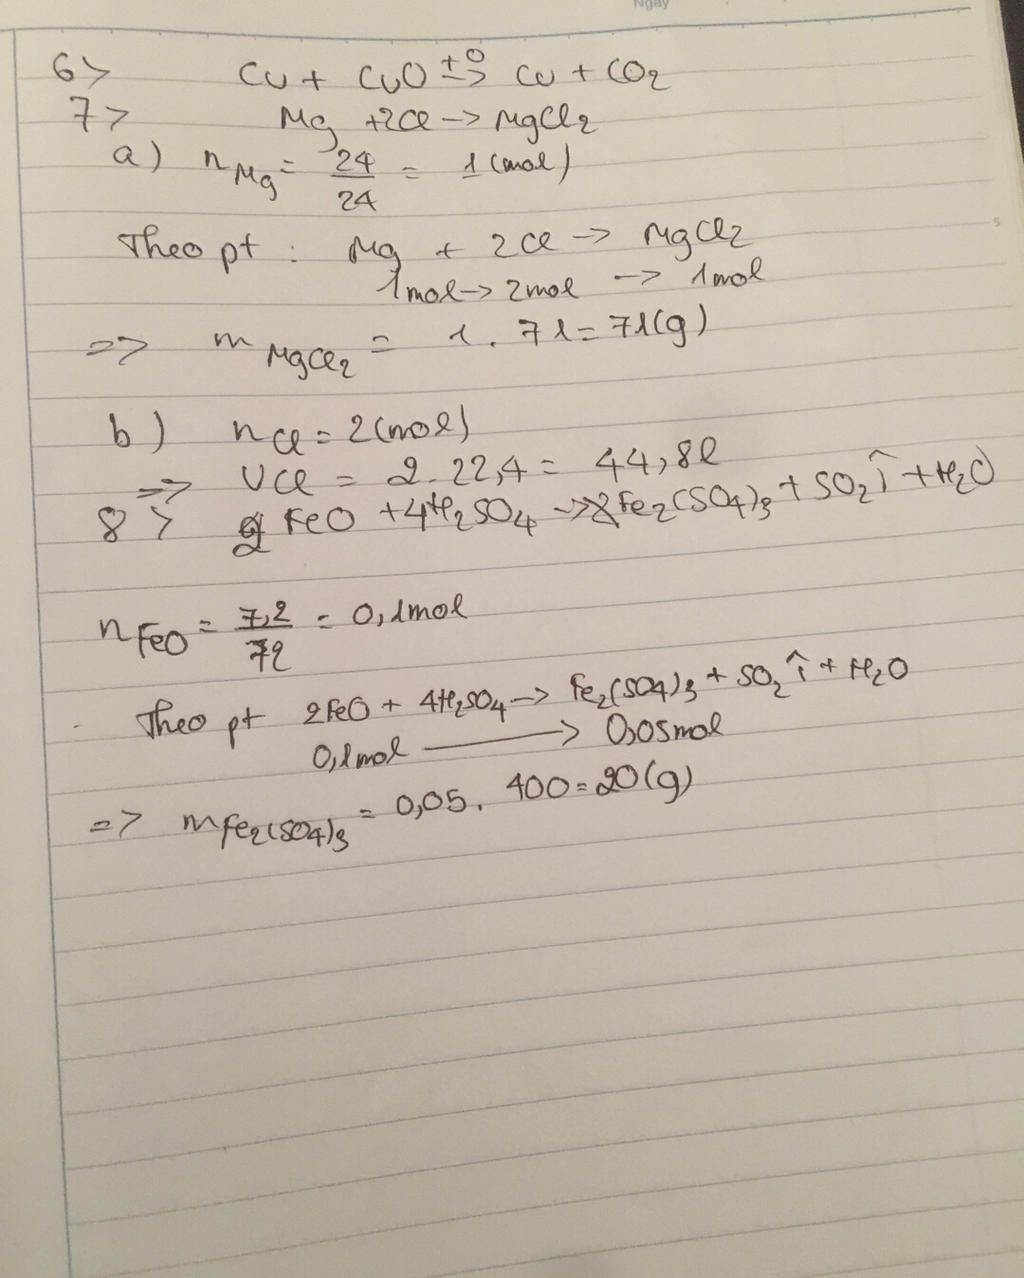 Ngày
6> Cu + CuO t°-> Cu + CO2
7> Mg +2Cl -> MgCl2
a) nMg = 24/24 = 1(mol)
Theo pt : Mg + 2Cl -> MgCl2
1mol -> 2mol -> 1mol
=> mMgCl2 = 1 . 71 = 71(g)
b) nCl = 2(mol)
=> VCl = 2.22,4 = 44,8l
8> 2FeO +4H2SO4 -> Fe2(SO4)3 + SO2↑ + H2O
nFeO = 7,2/72 = 0,1mol
Theo pt 2FeO + 4H2SO4 -> Fe2(SO4)3 + SO2↑ + H2O
0,1mol -> 0,05mol
=> mFe2(SO4)3 = 0,05. 400 = 20(g)